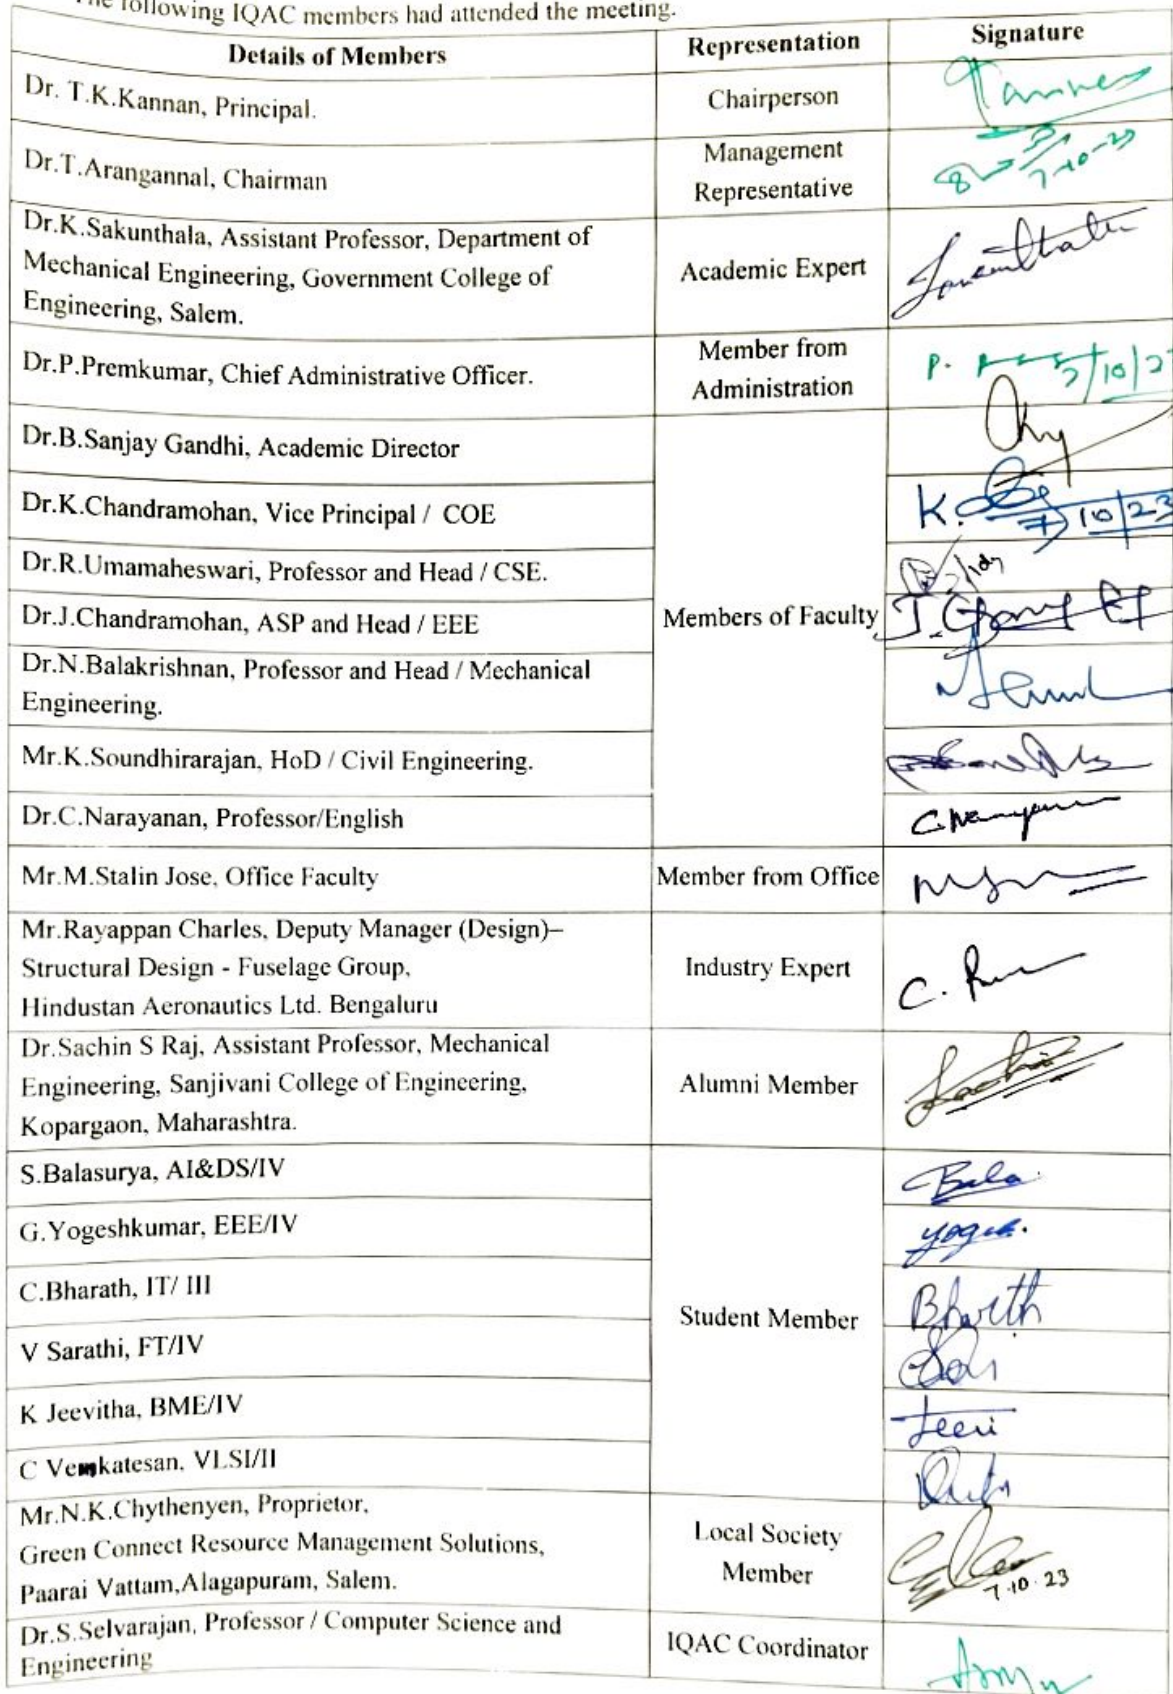 following IQAC members had attended the meeting.
Details of Members Representation Signature
Dr. T.K.Kannan, Principal. Chairperson
Dr.T.Arangannal, Chairman Management
Representative
7-10-23
Dr.K.Sakunthala, Assistant Professor, Department of
Mechanical Engineering, Government College of
Engineering, Salem.
Academic Expert
Dr.P.Premkumar, Chief Administrative Officer.
Member from
Administration
P. 7/10/2
Dr.B.Sanjay Gandhi, Academic Director
Dr.K.Chandramohan, Vice Principal / COE
K. 7/10/23
Dr.R.Umamaheswari, Professor and Head / CSE.
Dr.J.Chandramohan, ASP and Head / EEE
Members of Faculty
Dr.N.Balakrishnan, Professor and Head / Mechanical
Engineering.
Mr.K.Soundhirarajan, HoD / Civil Engineering.
Dr.C.Narayanan, Professor/English
Mr.M.Stalin Jose, Office Faculty Member from Office
Mr.Rayappan Charles, Deputy Manager (Design)–
Structural Design - Fuselage Group,
Hindustan Aeronautics Ltd. Bengaluru
Industry Expert
Dr.Sachin S Raj, Assistant Professor, Mechanical
Engineering, Sanjivani College of Engineering,
Kopargaon, Maharashtra.
Alumni Member
S.Balasurya, AI&DS/IV
Bala
G.Yogeshkumar, EEE/IV
C.Bharath, IT/ III
Student Member
V Sarathi, FT/IV
K Jeevitha, BME/IV
C Venkatesan, VLSI/II
Mr.N.K.Chythenyen, Proprietor,
Green Connect Resource Management Solutions,
Paarai Vattam,Alagapuram, Salem.
Local Society
Member
7.10.23
Dr.S.Selvarajan, Professor / Computer Science and
Engineering
IQAC Coordinator